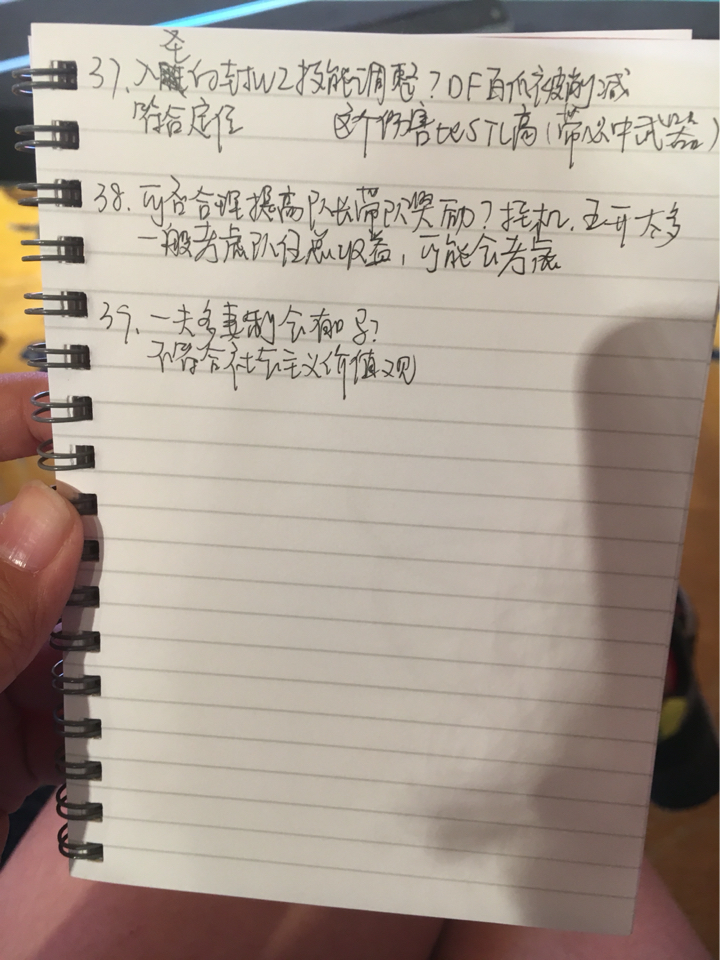 37、入圣的封WZ技能调整？DF百爪被削减
符合定位 这个伤害比STL高（带必中武器）
38、可否合理提高队长带队奖励？挂机、五开太多
一般考虑队伍总收益，可能会考虑
39、一夫多妻制会有吗？
不符合社会主义价值观